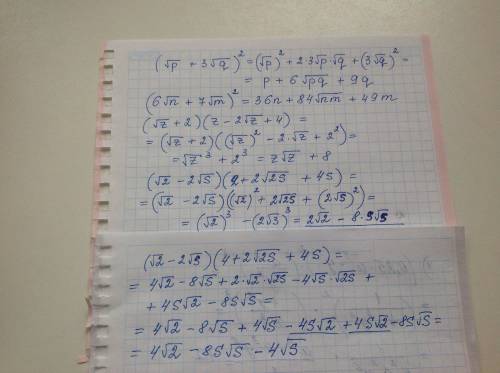 (√p + 3√q)² = (√p)² + 2·3√p·√q + (3√q)² =
= p + 6√pq + 9q
(6√n + 7√m)² = 36n + 84√nm + 49m
(√z + 2)(z - 2√z + 4) =
= (√z + 2)((√z)² - 2·√z + 2²) =
= √z³ + 2³ = z√z + 8
(√2 - 2√s)(2 + 2√2s + 4s) =
= (√2 - 2√s)((√2)² + 2√2s + (2√s)²) =
= (√2)³ - (2√s)³ = 2√2 - 8·s√s
(√2 - 2√s)(4 + 2√2s + 4s) =
= 4√2 - 8√s + 2·√2·√2s - 4√s·√2s +
+ 4s√2 - 8s√s =
= 4√2 - 8√s + 4√s - 4s√2 + 4s√2 - 8s√s =
= 4√2 - 8s√s - 4√s